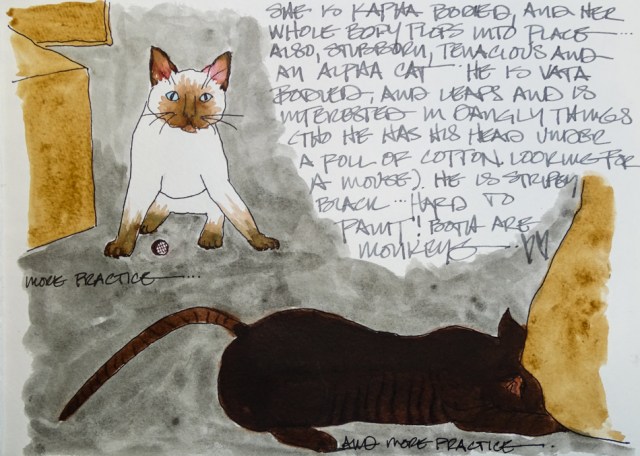 SHE IS KAPHA BODIED, AND HER
WHOLE BODY FLOPS INTO PLACE...
ALSO, STUBBORN, TENACIOUS AND
AN ALPHA CAT HE IS VATA
BODIED, AND LEAPS AND IS
INTERESTED IN DANGLY THINGS
(THO HE HAS HIS HEAD UNDER
A ROLL OF COTTON LOOKING FOR
A MOUSE). HE IS STRIPEY
BLACK... HARD TO
PAINT! BOTH ARE
MONKEYS
MORE PRACTICE...
AND MORE PRACTICE...